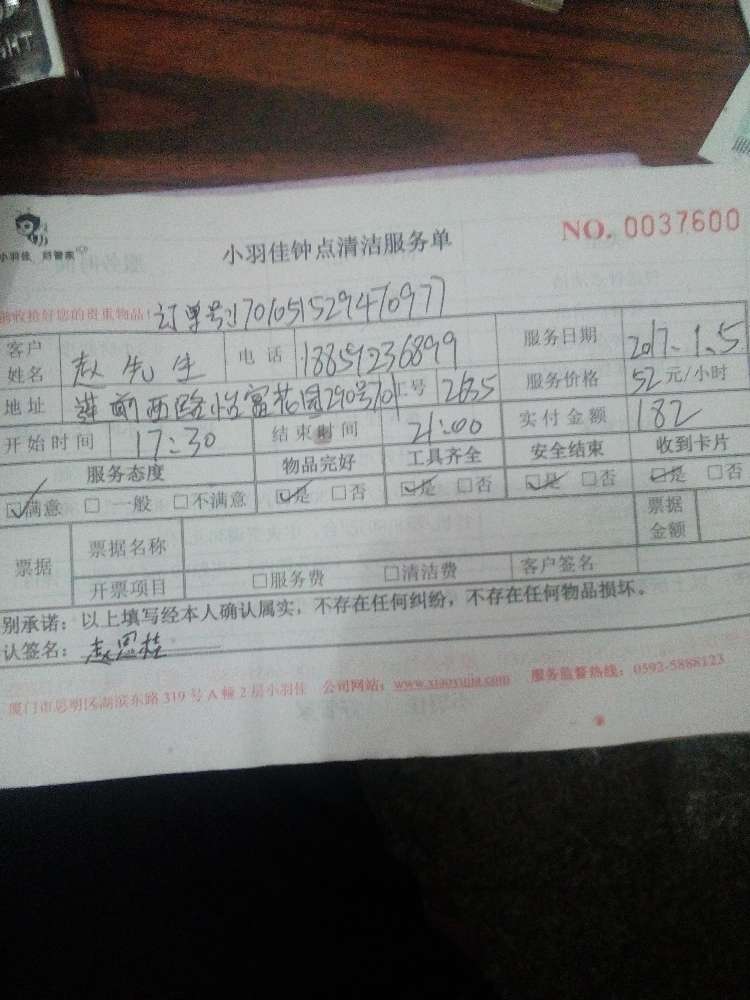 小羽佳 好管家
小羽佳钟点清洁服务单
NO. 0037600
收捡好您的贵重物品! 订单号:170105152947097
客户姓名 赵先生 电话 18859236899 服务日期 2017.1.5
地址 莲前西路怡富花园290号701 号 2635 服务价格 52 元/小时
开始时间 17:30 结束时间 21:00 实付金额 182
服务态度 物品完好 工具齐全 安全结束 收到卡片
☑满意 □一般 □不满意 ☑是 □否 ☑是 □否 ☑是 □否 ☑是 □否
票据 票据名称 票据金额
开票项目 □服务费 □清洁费 客户签名
别承诺:以上填写经本人确认属实,不存在任何纠纷,不存在任何物品损坏。
认签名: 赵思桂
厦门市思明区湖滨东路319号A幢2层小羽佳 公司网站:www.xiaoyujia.com 服务监督热线:0592-5888123